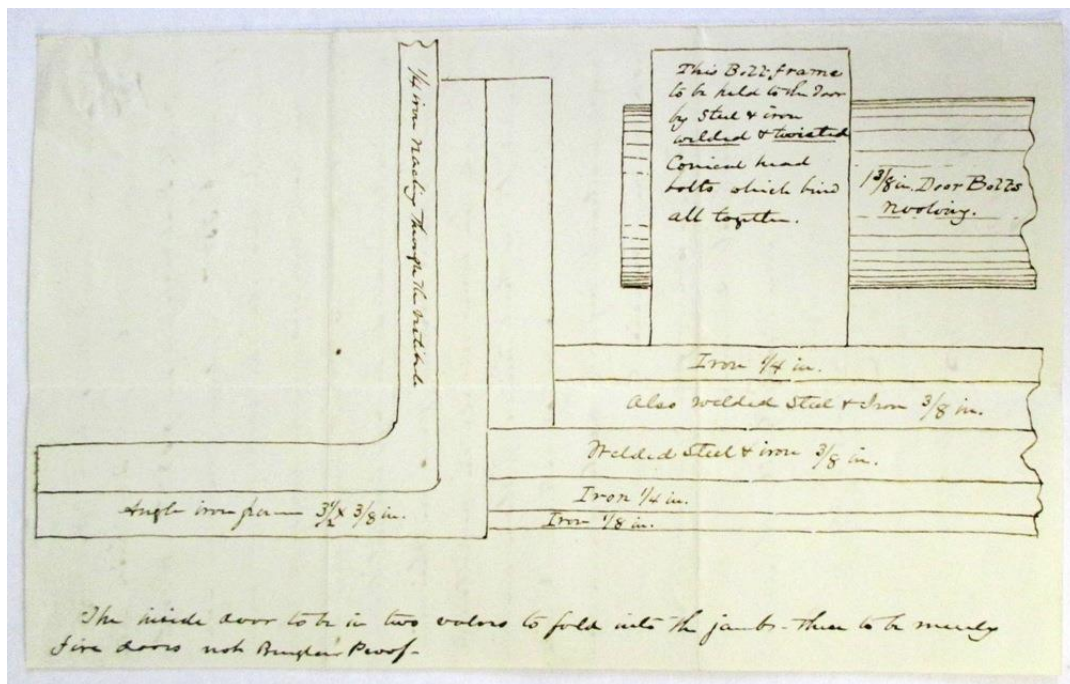 1/4 iron reaching through the vestibule
This Bolt frame
to be held to the door
by Steel & iron
welded & twisted
Conical head
bolts which bind
all together.
1 3/8 in. Door Bolts
revolving.
Iron 1/4 in.
Also Welded Steel & Iron 3/8 in.
Welded Steel & iron 3/8 in.
Iron 1/4 in.
Iron 1/8 in.
Angle iron frame 3 1/2 x 3/8 in.
The inside door to be in two valves to fold into the jambs - these to be merely
Fire doors not Burglar Proof -